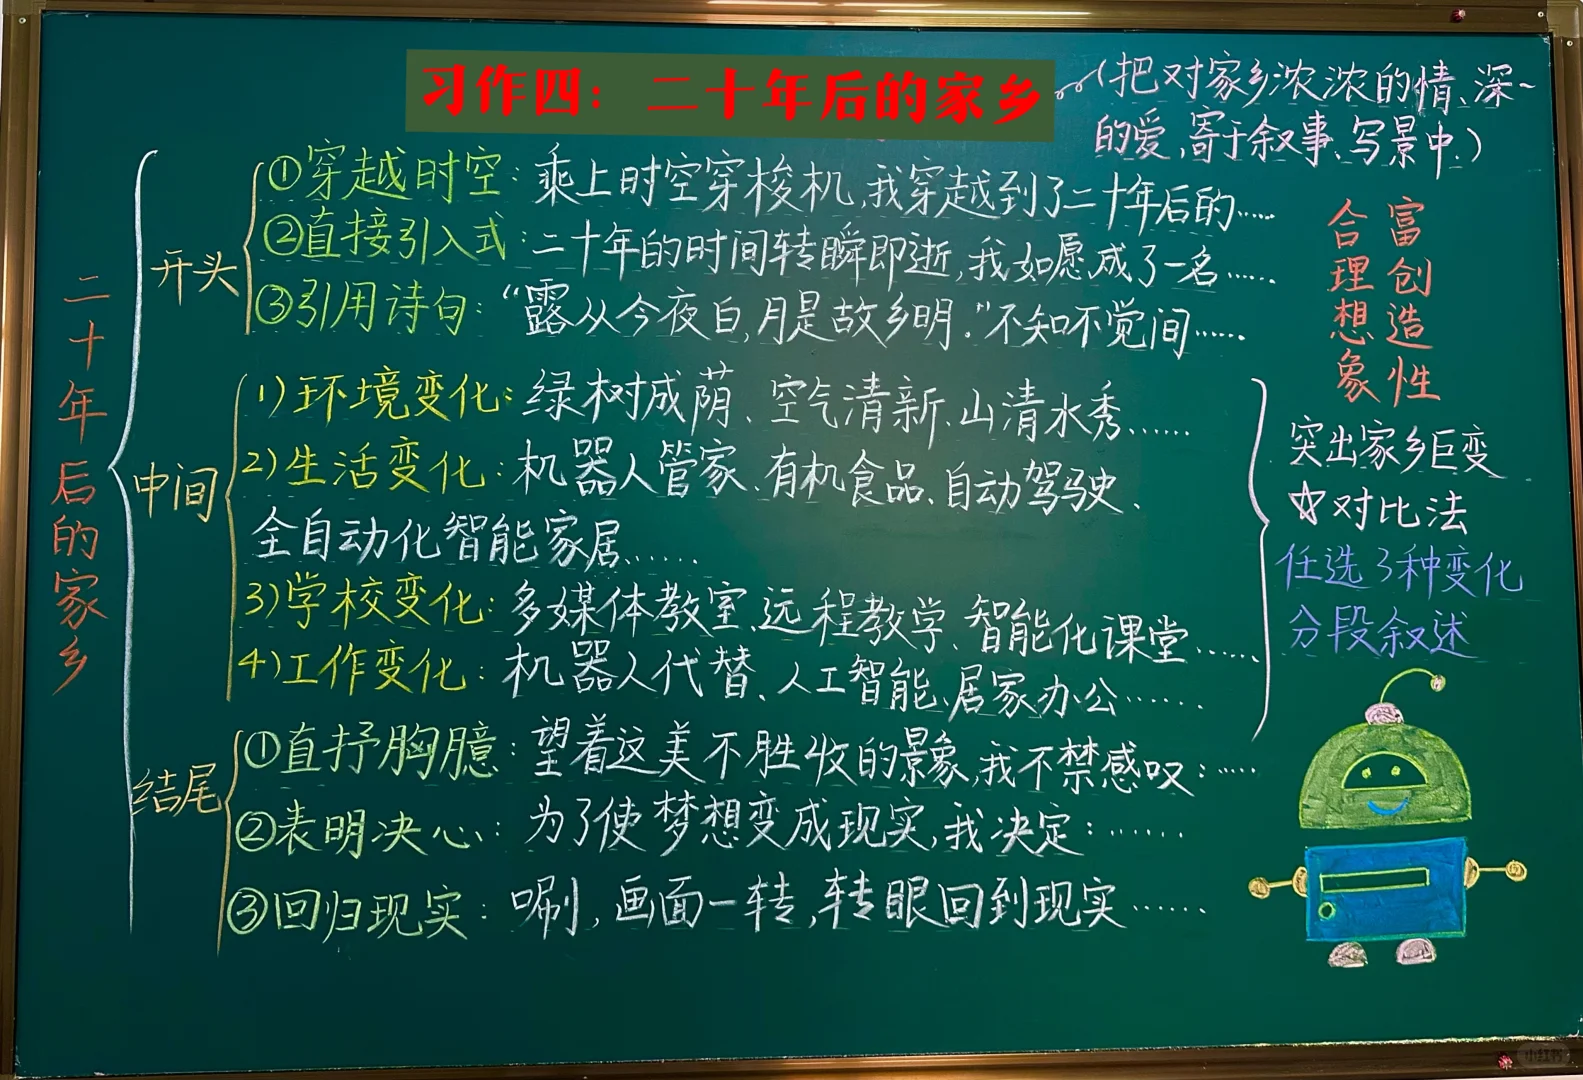 习作四：二十年后的家乡
(把对家乡浓浓的情、深~
的爱,寄于叙事、写景中.)
二十年后的家乡
开头
①穿越时空：乘上时空穿梭机,我穿越到了二十年后的……
②直接引入式：二十年的时间转瞬即逝,我如愿成了一名……
③引用诗句：“露从今夜白,月是故乡明.”不知不觉间……
中间
1)环境变化：绿树成荫、空气清新、山清水秀……
2)生活变化：机器人管家、有机食品、自动驾驶、
全自动化智能家居……
3)学校变化：多媒体教室、远程教学、智能化课堂……
4)工作变化：机器人代替、人工智能、居家办公……
结尾
①直抒胸臆：望着这美不胜收的景象,我不禁感叹：……
②表明决心：为了使梦想变成现实,我决定：……
③回归现实：唰,画面一转,转眼回到现实……
合理想象
富创造性
突出家乡巨变
☆对比法
任选3种变化
分段叙述
小红书